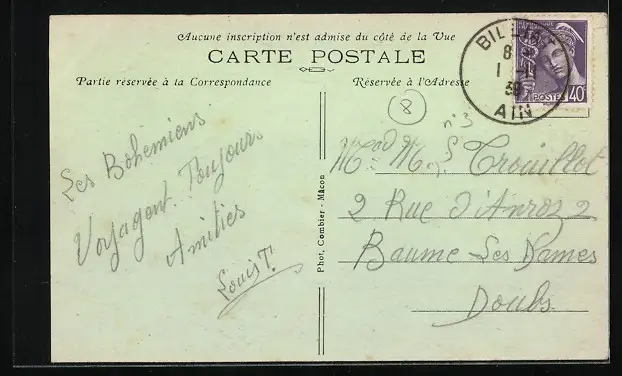 Aucune inscription n'est admise du côté de la Vue
CARTE POSTALE
Partie réservée à la Correspondance
Réservée à l'Adresse
8
AIN
POSTES 40
n° 3
Les Bohémiens
Voyagent Toujours
Amitiés
Louis T.
Phot. Combier - Mâcon
Trouillot
2 Rue d'Anroz 2
Baume-Les-Dames
Doubs